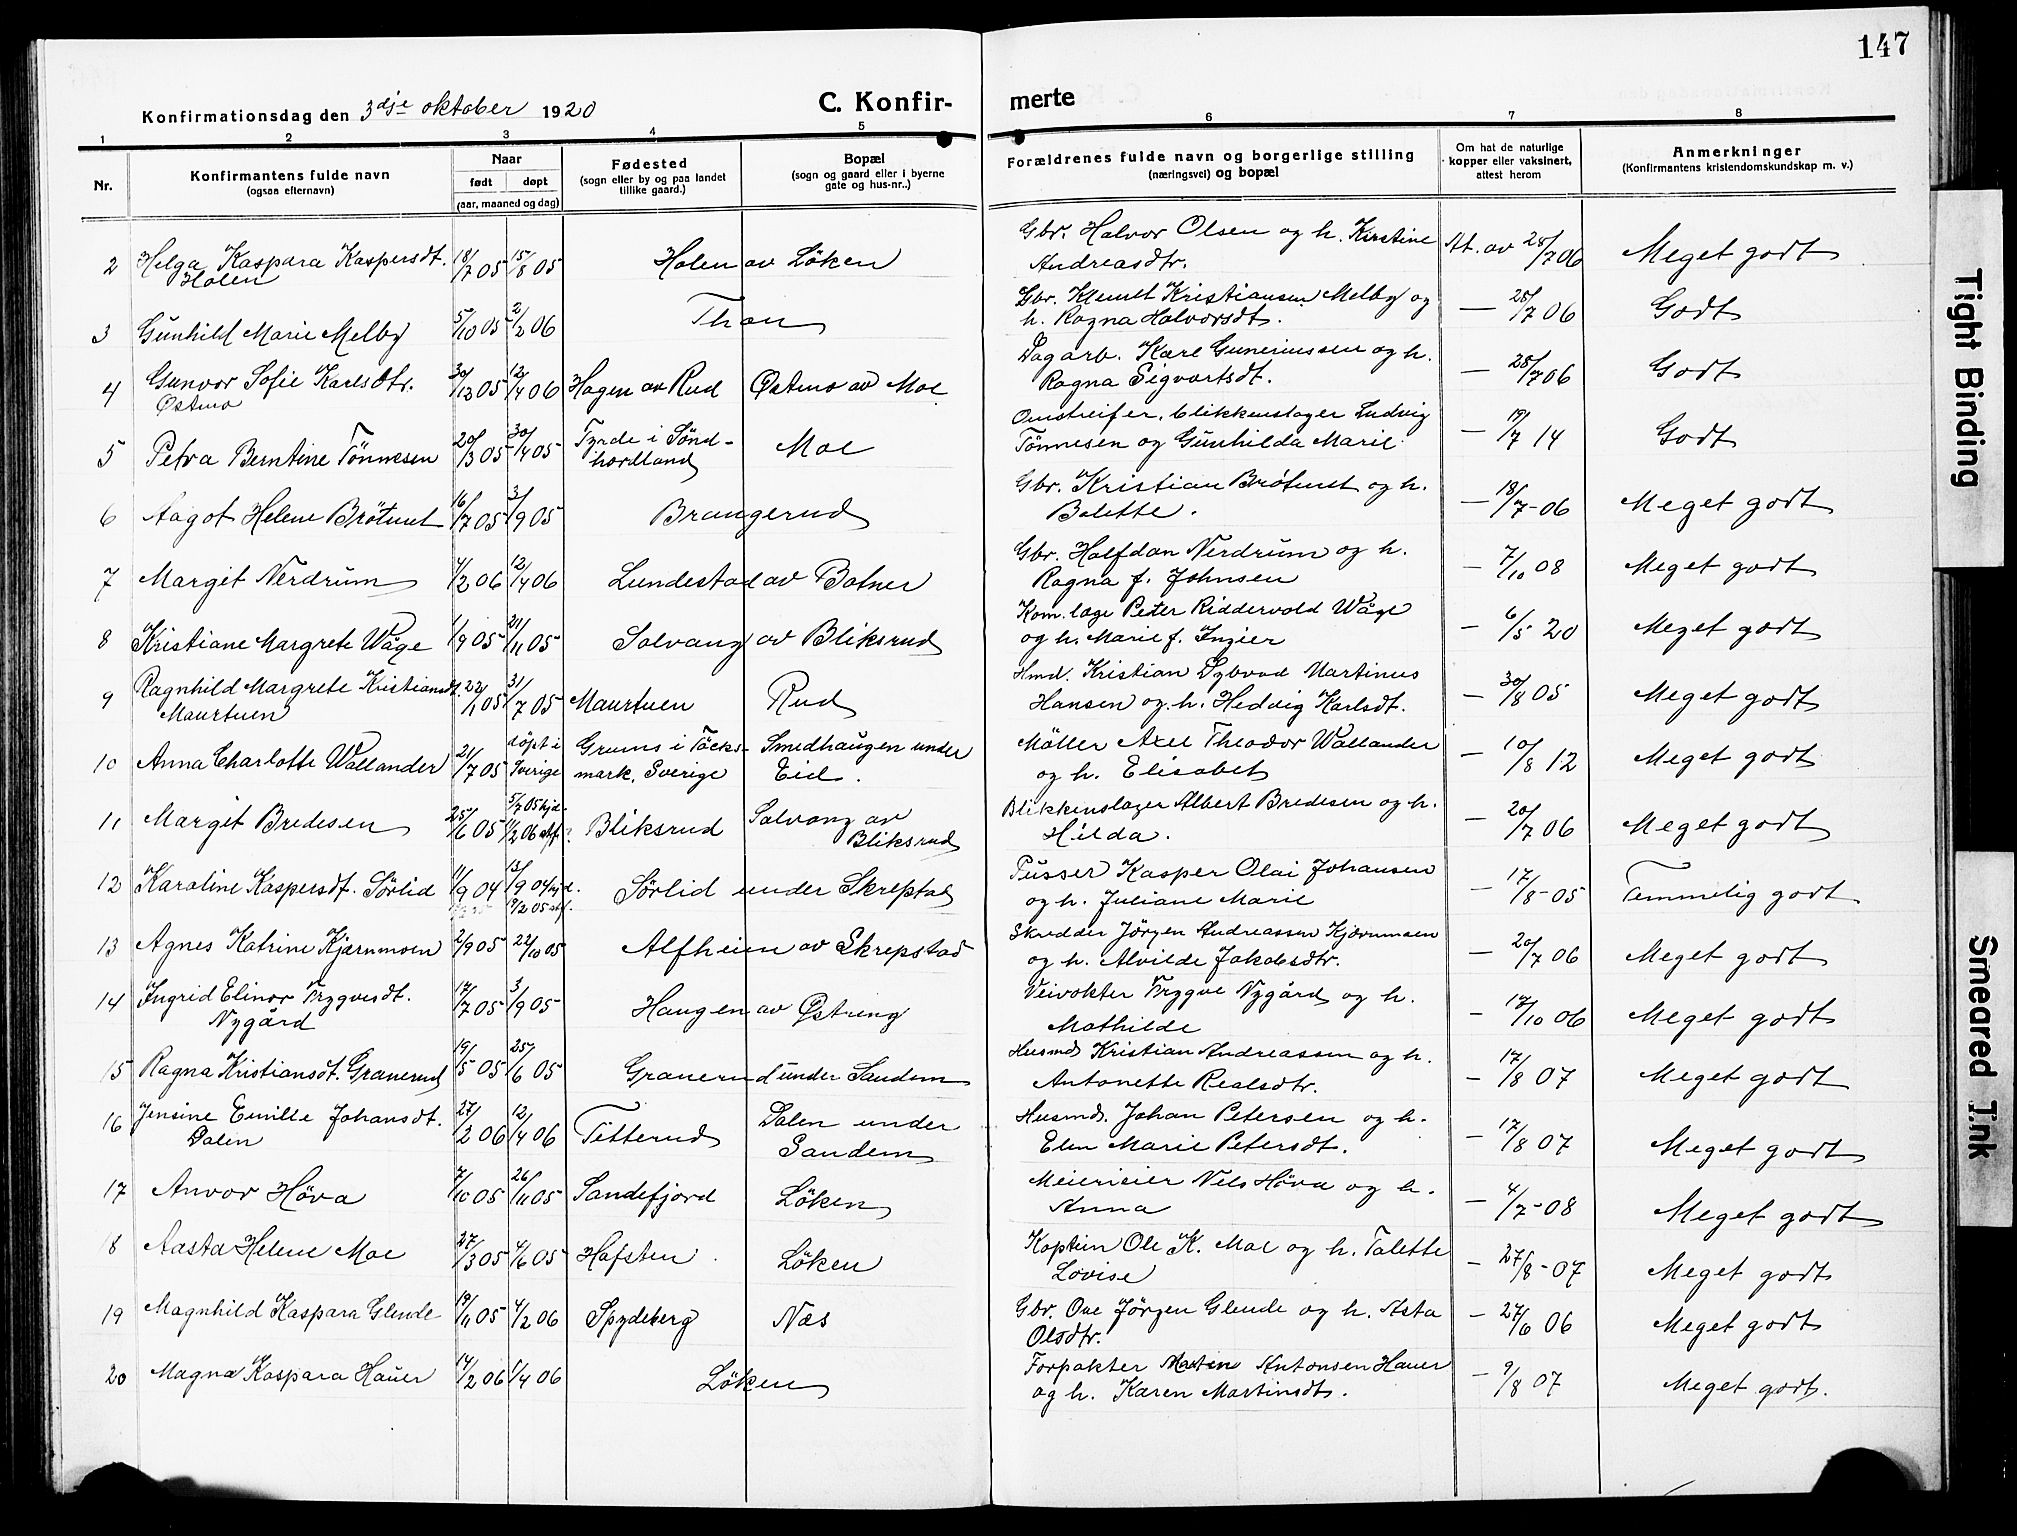 147
Konfirmationsdag den 3dje oktober 1920
C. Konfir-
merte
1 2 3 4 5 6 7 8
Nr.
Konfirmantens fulde navn
(ogsaa efternavn)
Naar
født døpt
(aar, maaned og dag)
Fødested
(sogn eller by og paa landet
tillike gaard.)
Bopæl
(sogn og gaard eller i byerne
gate og hus-nr..)
Forældrenes fulde navn og borgerlige stilling
(næringsvei) og bopæl
Om hat de naturlige
kopper eller vaksinert,
attest herom
Anmerkninger
(Konfirmantens kristendomskundskap m. v.)
2 Helga Kaspara Kaspersdt. 18/7 05 15/8 05 Holen av Löken Gbr. Halvor Olsen og h. Kirstine At. av 25/7 06 Meget godt
Holen Andreasdtr.
3 Gunhild Marie Melby 5/10 05 2/2 06 Thon Gbr. Klemet Kristiansen Melby og — 25/7 06 Godt
h. Ragna Halvorsdt.
4 Gunvor Sofie Karlsdtr. 30/12 05 12/4 06 Hagen av Rud Østmo av Moe Dagarb. Karl Guneriussen og h. — 25/7 06 Godt
Østmo Ragna Sigvartsdt.
5 Petra Berntine Tönnesen 20/3 05 30/4 05 Tyrde i Sönd- Moe Omstreifer, blikkenslager Ludvig — 19/7 14 Godt
hordland Tönnesen og Gunhilda Marie
6 Aagot Helene Brötmet 16/7 05 3/9 05 Brangerud Gbr. Kristian Brötmet og h. — 18/7-06 Meget godt
Bolette.
7 Margit Nerdrum 4/2 06 12/4 06 Lundestad av Botner Gbr. Halfdan Nerdrum og h. — 7/10 08 Meget godt
Ragna f. Johnsen
8 Kristiane Margrete Wåge 1/9 05 21/11 05 Solvang av Bliksrud Kom. læge Peter Riddervold Wåge — 6/5 20 Meget godt
og h. Marie f. Ingier
9 Ragnhild Margrete Kristiansdt. 22/1 05 31/7 05 Maurtuen Rud Hmd. Kristian Dybvad Martinus — 30/8 05 Meget godt
Maurtuen Hansen og h. Hedvig Karlsdt.
10 Anna Charlotte Wallander 21/7 05 döpt i Sverige Grums i Töcks- Smedhaugen under Möller Axel Theodor Wallander — 10/8 12 Meget godt
mark, Sverige Eid. og h. Elisabet
11 Margit Bredesen 25/6 05 5/7 05 hjd. 11/2 06 stf. Bliksrud Solvang av Blikkenslager Albert Bredesen og h. — 20/7 06 Meget godt
Bliksrud Hilda.
12 Karoline Kaspersdt. Sörlid 11/9 04 13/9 04 hjd. 19/2 05 stf. Sörlid under Skrepstad Pusser Kasper Olai Johansen — 17/8-05 Temmelig godt
og h. Juliane Marie
13 Agnes Katrine Kjærnmoen 2/9 05 22/10 05 Alfheim av Skrepstad Skredder Jörgen Andreassen Kjærnmoen — 20/7 06 Meget godt
og h. Alvilde Jakobsdtr.
14 Ingrid Elinor Trygvesdt. 17/7 05 3/9 05 Haugen av Østreng Veivokter Trygve Nygård og h. — 17/10 06 Meget godt
Nygård Mathilde
15 Ragna Kristiansdt. Granerud 19/5 05 25/6 05 Granerud under Sandem Husmd. Kristian Andreassen og h. — 17/8 07 Meget godt
Antonette Realsdtr.
16 Jensine Emilie Johansdt. 27/2 06 12/4 06 Titterud Dalen under Husmd. Johan Petersen og h. — 17/8 07 Meget godt
Dalen Sandem Elen Marie Petersdt.
17 Anvor Höva 7/10 05 26/11 05 Sandefjord Löken Meierieier Nils Höva og h. — 4/7-08 Meget godt
Anna
18 Aasta Helene Moe 27/3 05 4/6 05 Hafsten Löken Kaptein Ole K. Moe og h. Talette — 27/8-07 Meget godt
Lovise
19 Magnhild Kaspara Glende 19/11 05 4/2 06 Spydeberg Næs Gbr. Ove Jörgen Glende og h. Asta — 27/6 06 Meget godt
Olsdtr.
20 Magna Kaspara Hauer 14/2 06 1/4 06 Löken Forpakter Martin Antonsen Hauer — 9/8 07 Meget godt.
og h. Karen Martinsdt.
Tight Binding
Smeared Ink